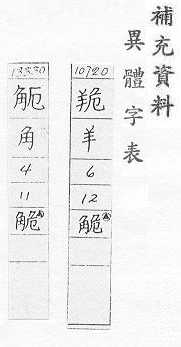 補充資料
異體字表
10720
羊
6
12
觤
角
4
11
觤